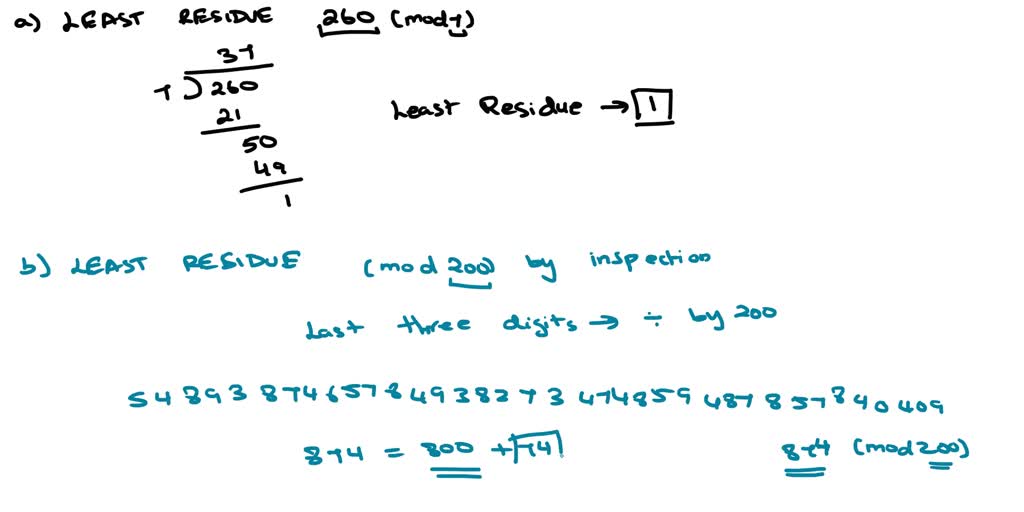 a) LEAST RESIDUE 260 (mod 7)
37
7 ) 260
21
50
49
1
Least Residue → 1
b) LEAST RESIDUE (mod 200) by inspection
Last three digits → ÷ by 200
54 893 874657849382 7 3 474859 487 857840409
874 = 800 + 74
874 (mod 200)